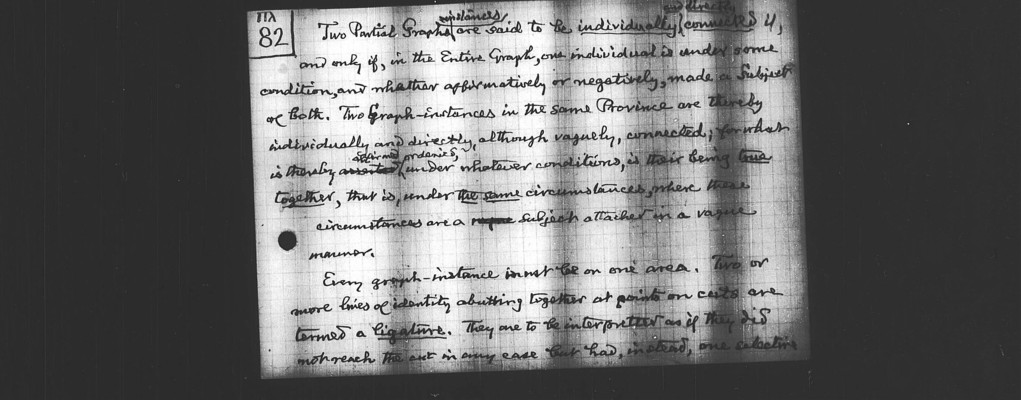 82
Two Partial Graphs instances are said to be individually and directly connected if,
and only if, in the Entire Graph, one individual is under some
condition, and whether affirmatively or negatively, made a Subject
of both. Two Graph-instances in the same Province are thereby
individually and directly, although vaguely, connected; for what
is thereby asserted affirmed or denied, under whatever conditions, is their being true
together, that is, under the same circumstances, where these
circumstances are a vague subject attached in a vague
manner.
Every graph-instance must be on one area. Two or
more lines of identity abutting together at points on cuts are
termed a ligature. They are to be interpreted as if they did
not reach the cut in any case but had, instead, one selective